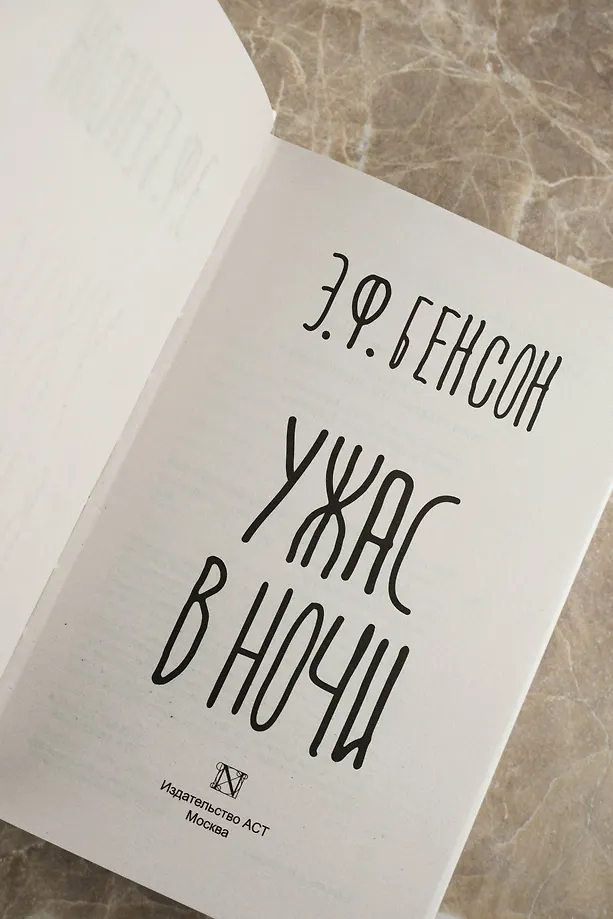 Э.Ф. БЕНСОН
УЖАС
В НОЧИ
N
Издательство АСТ
Москва